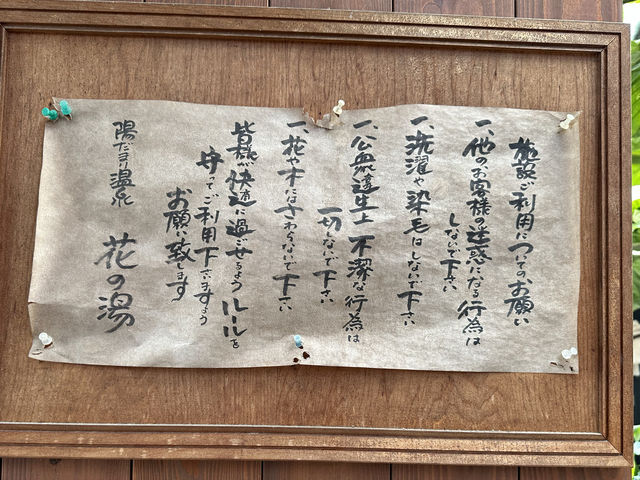 施設ご利用についてのお願い
一、他のお客様の迷惑になる行為は
しないで下さい
一、洗濯や染毛はしないで下さい
一、公衆衛生上不潔な行為は
一切しないで下さい
一、花や木にはさわらないで下さい
皆様が快適に過ごせるようルールを
守ってご利用下さいますよう
お願い致します
陽だまり温泉
花の湯